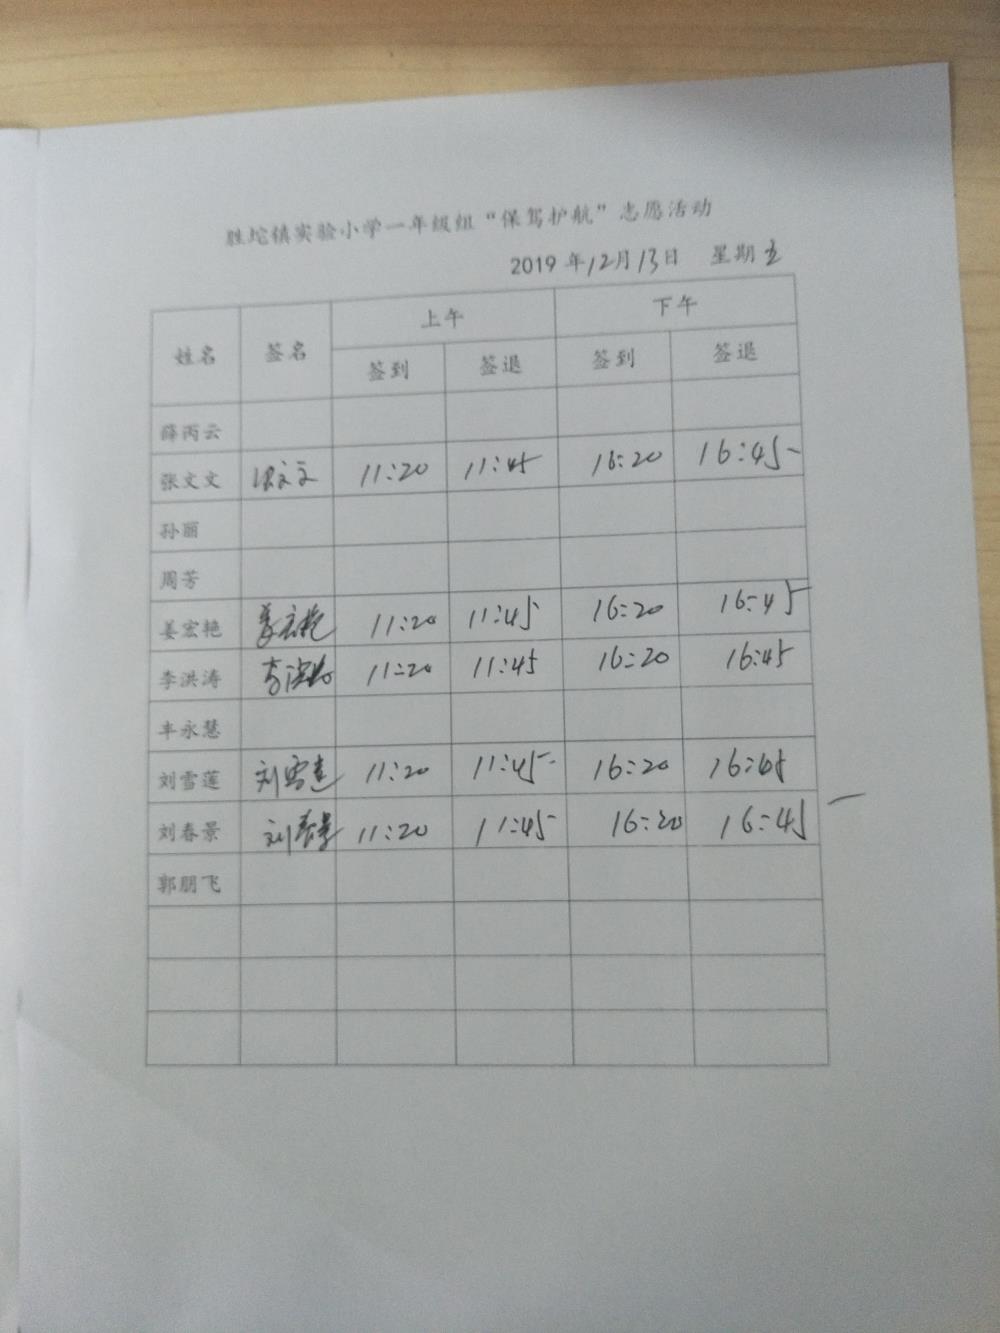 胜坨镇实验小学一年级组“保驾护航”志愿活动
2019 年12月13日 星期五
姓名 签名 上午 下午
签到 签退 签到 签退
薛丙云
张文文 张文文 11:20 11:45 16:20 16:45
孙丽
周芳
姜宏艳 姜宏艳 11:20 11:45 16:20 16:45
李洪涛 李洪涛 11:20 11:45 16:20 16:45
丰永慧
刘雪莲 刘雪莲 11:20 11:45 16:20 16:45
刘春景 刘春景 11:20 11:45 16:20 16:45
郭朋飞